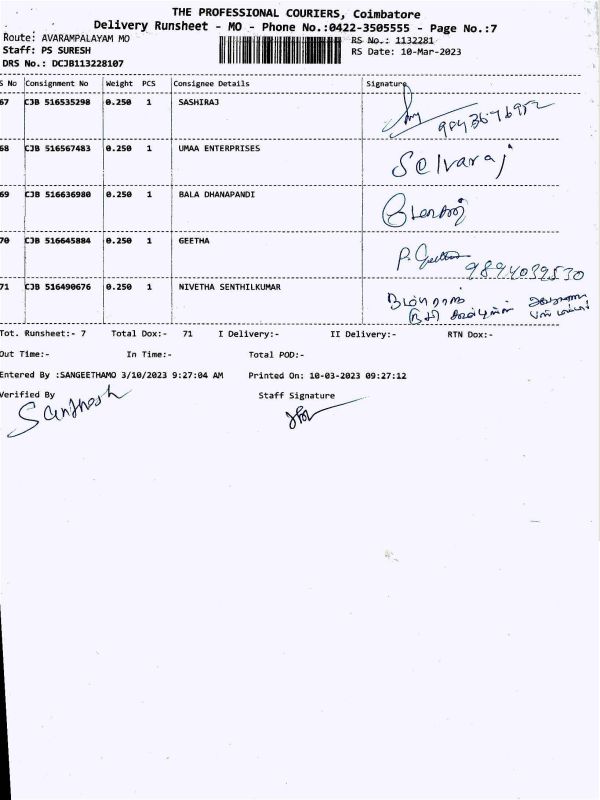 THE PROFESSIONAL COURIERS, Coimbatore
Delivery Runsheet - MO - Phone No.:0422-3505555 - Page No.:7
Route: AVARAMPALAYAM MO
RS No.: 1132281
Staff: PS SURESH
RS Date: 10-Mar-2023
DRS No.: DCJB113228107
S No Consignment No Weight PCS Consignee Details Signature
67 CJB 516535298 0.250 1 SASHIRAJ
68 CJB 516567483 0.250 1 UMAA ENTERPRISES Selvaraj
69 CJB 516636980 0.250 1 BALA DHANAPANDI
70 CJB 516645884 0.250 1 GEETHA P. Geetha 9894039530
71 CJB 516490676 0.250 1 NIVETHA SENTHILKUMAR
Tot. Runsheet:- 7 Total Dox:- 71 I Delivery:- II Delivery:- RTN Dox:-
Out Time:- In Time:- Total POD:-
Entered By :SANGEETHAMO 3/10/2023 9:27:04 AM Printed On: 10-03-2023 09:27:12
Verified By Staff Signature
Santhosh